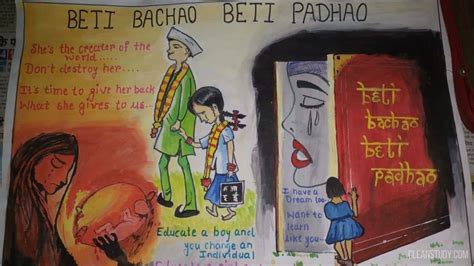 BETI BACHAO BETI PADHAO
She's the creater of the
world.....
Don't destroy her....
It's time to give her back
What she gives to us...
beti
bachao
beti
padhao
I have a
Dream too..
Want to
learn
Like you..
Educate a boy and
you change an
Individual
CLEANSTUDY.COM